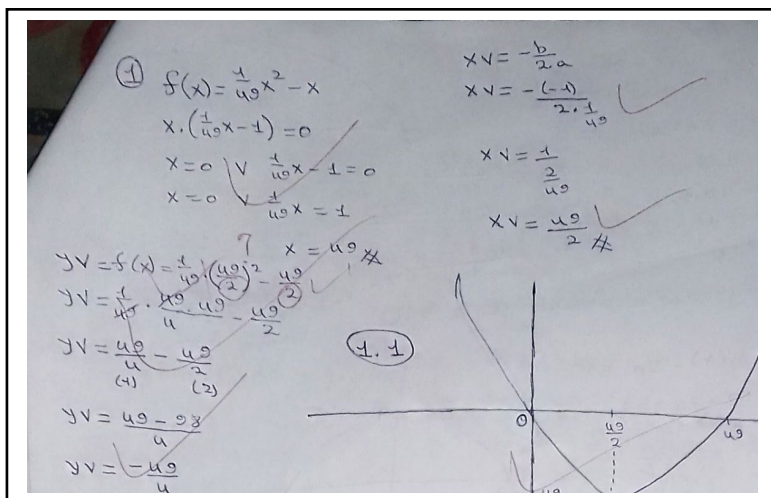 1 f(x) = 1/49 x² - x
x·(1/49 x - 1) = 0
x = 0 ∨ 1/49 x - 1 = 0
x = 0 ∨ 1/49 x = 1
x = 49
xv = -b/2a
xv = -(-1)/(2·1/49)
xv = 1/(2/49)
xv = 49/2
yv = f(x) = 1/49·(49/2)² - 49/2
yv = 1/49 · 49·49/4 - 49/2
yv = 49/4 - 49/2
(1) (2)
yv = 49-98/4
yv = -49/4
1.1
0 49/2 49